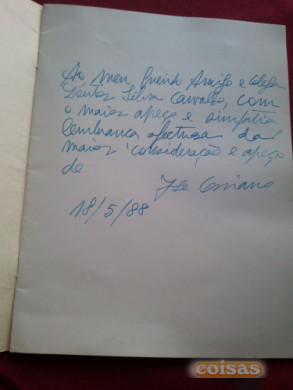 Ao meu Querido Amigo e Colega
Doutor Silva Carvalho, com
o maior apreço e simpatia
lembrança afectuosa da
maior consideração e apreço
de
18/5/88
coisas